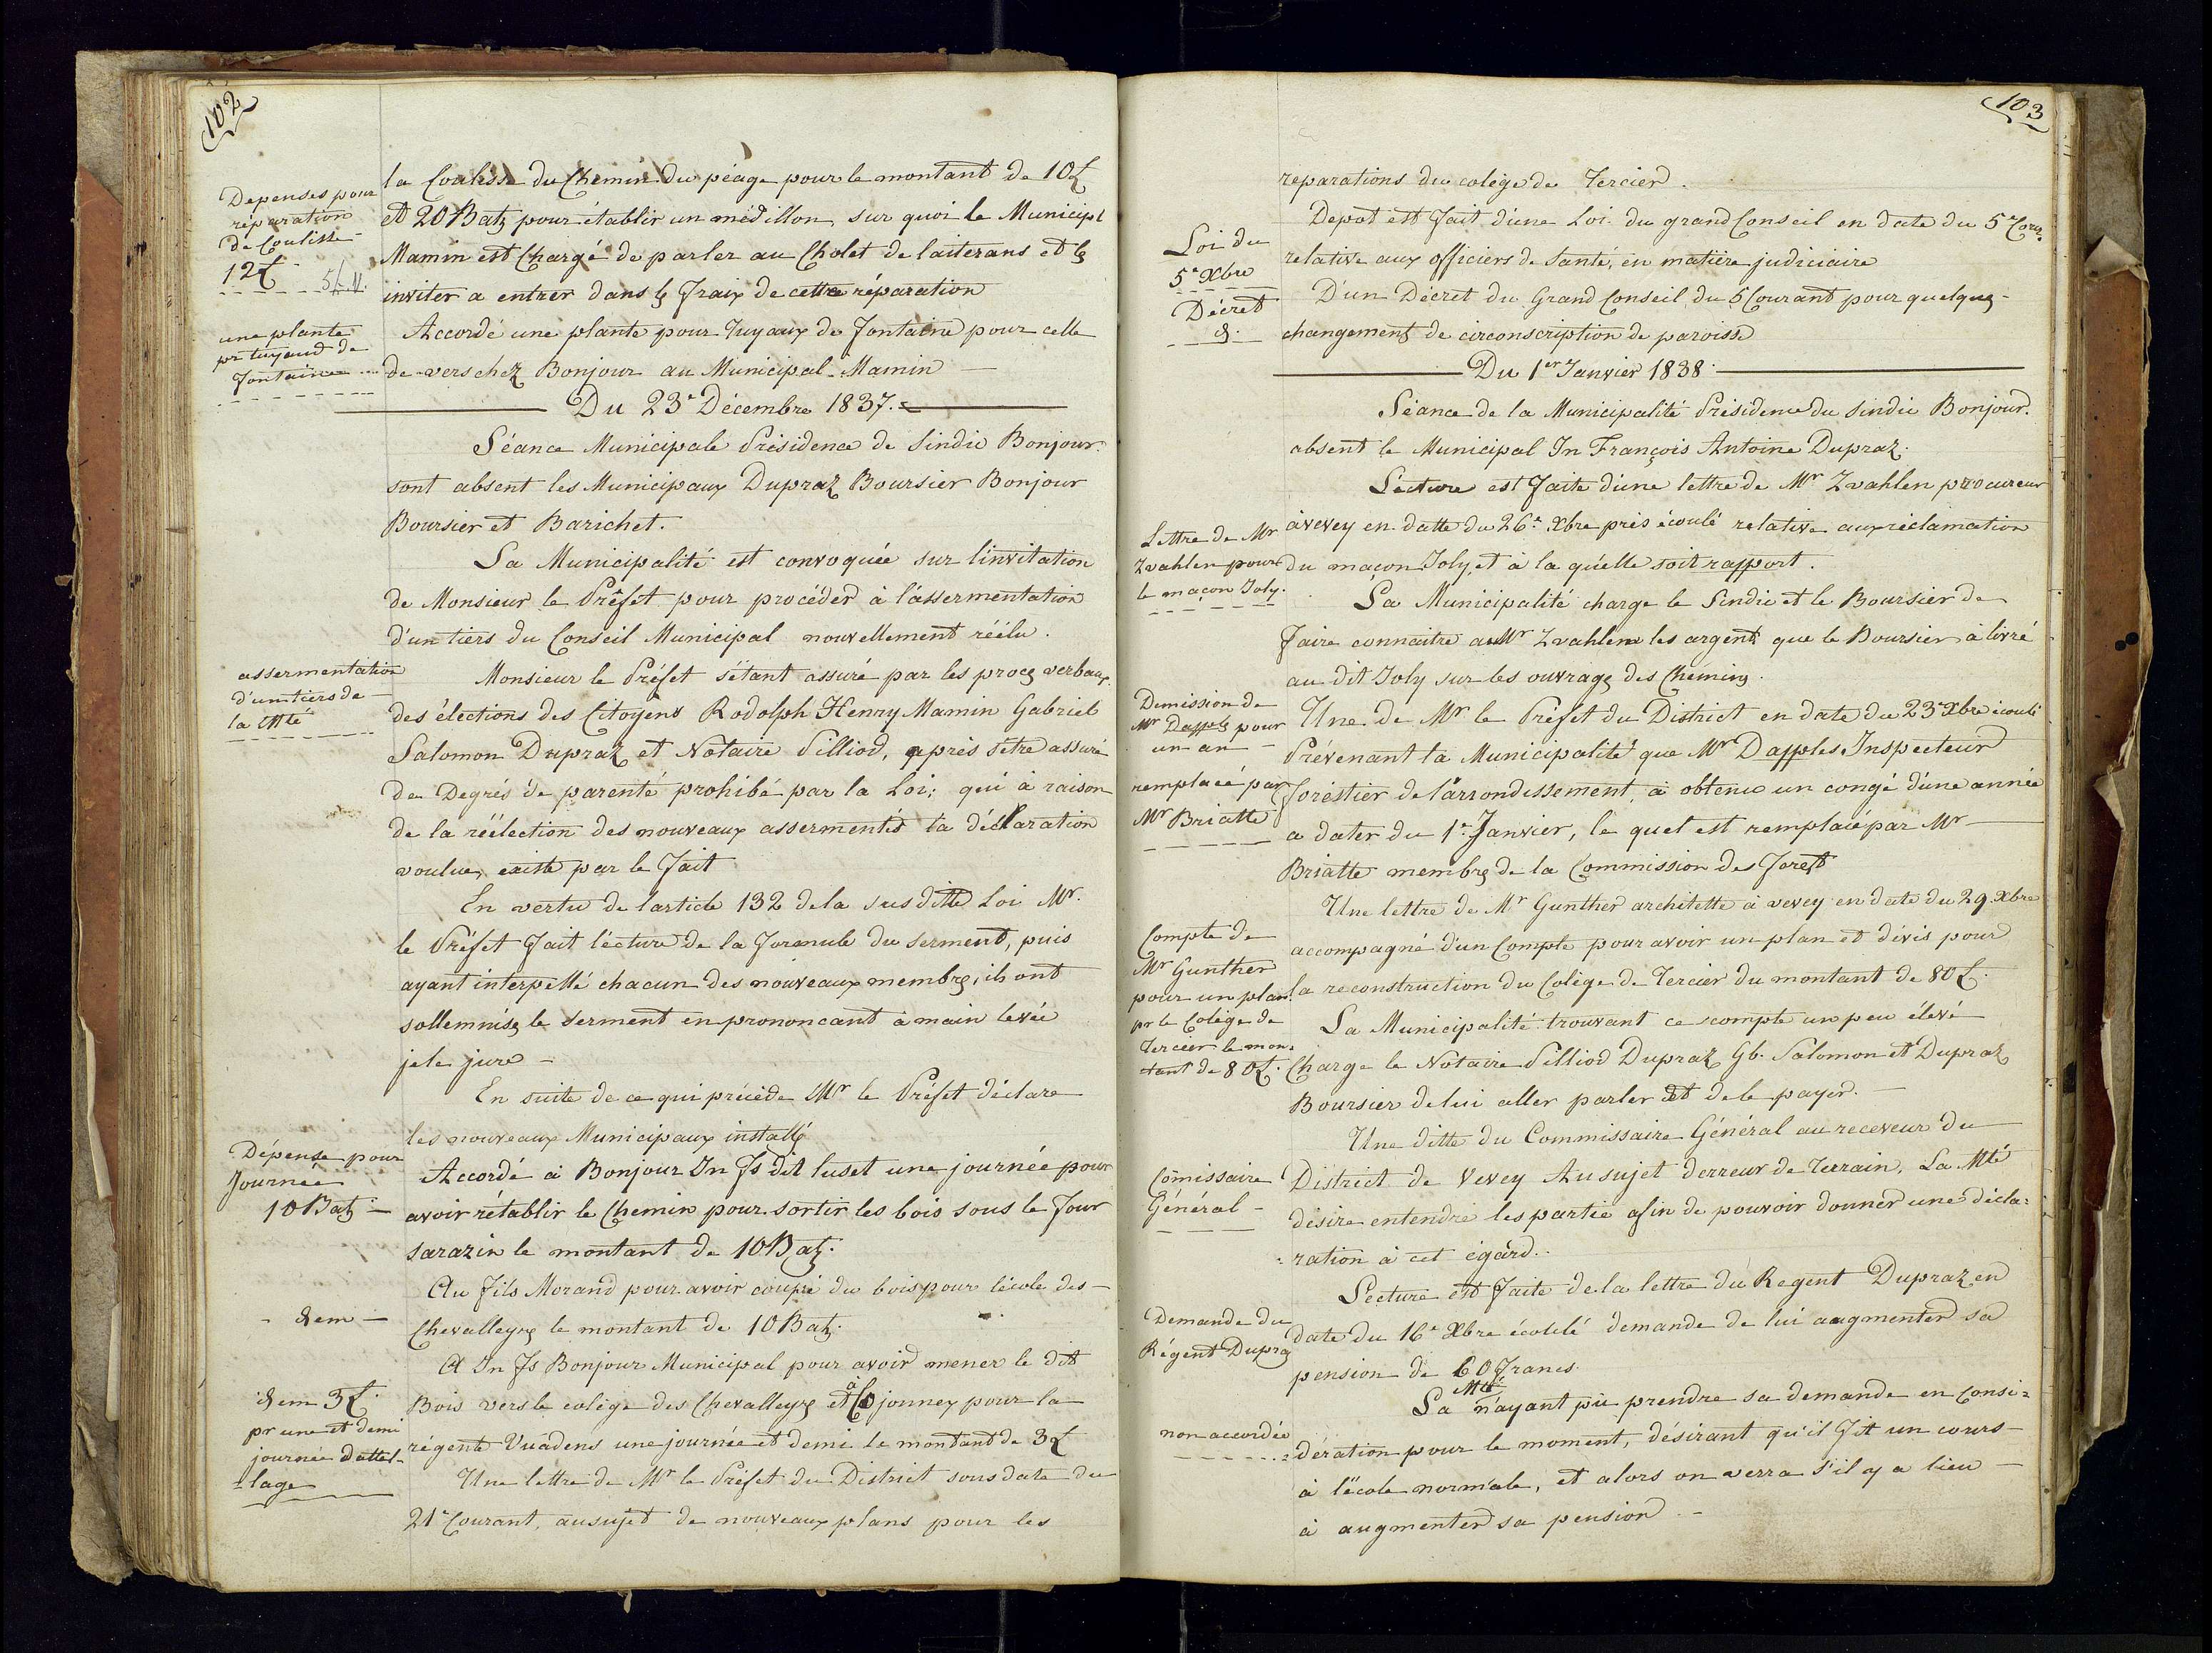 102
Depenses pour
réparation
de Coulisse
12£
une plante
pr tuyaud de
fontaine
assermentation
d'un tiers de
la Mté
Dépense pour
Journée
10 Batz
idem
idem 3£.
pr une et demi
journée d'attel-
-lage
la Coulisse du Chemin du péage pour le montant de 10£
et 20 Batz pour établir un médillon, sur quoi le Municipl
Mamin est Chargé de parler au Cholet de laiterans et les
inviter a entrer dans les fraix de cette réparation
Accordé une plante pour Tuyaux de fontaine pour celle
de vers chez Bonjour au Municipal Mamin
Du 23e Décembre 1837.
Séance Municipale Présidence de Sindic Bonjour.
sont absent les Municipaux Dupraz Boursier Bonjour
Boursier et Barichet.
La Municipalité est convoquée sur l'invitation
de Monsieur le Préfet pour procéder à l'assermentation
d'un tiers du Conseil Municipal nouvellement réélu.
Monsieur le Préfet s'étant assuré par les proces verbaux
des élections des Citoyens Rodolph Henry Mamin Gabriel
Salomon Dupraz et Notaire Pilliod, après s'être assuré
de Degrés de parenté prohibé par la Loi; qui à raison
de la réélection des nouveaux assermentés la déclaration
voulue, existe par le fait
En vertu de l'article 132 de la susditte Loi Mr.
le Préfet fait lécture de la formule du serment, puis
ayant interpellé chacun des nouveaux membres, ils ont
sollemnisés le serment en prononcant à main levée
je le jure -
En suite de ce qui précède Mr le Préfet déclare
les nouveaux Municipaux installés
Accordé à Bonjour Jn Fs dit luset une journée pour
avoir rétablir le Chemin pour sortir les bois sous le four
sarazin le montant de 10 Batz.
Au fils Morand pour avoir coupé du bois pour l'école des
Chevalleyres le montant de 10 Batz.
A Jn Fs Bonjour Municipal pour avoir mener le dit
Bois vers le colège des Chevalleyres et à Cojonnex pour la
régente Vuadens une journée et demi le montant de 3£
Une lettre de Mr le Préfet du District sous date du
21e Courant, au sujet de nouveaux plans pour les
103
Loi du
5e Xbre
Décret
d.
Lettre de Mr
Zwahlen pour
le maçon Joly.
Demission de
Mr Dapples pour
un an
remplacé par
Mr Briatte
Compte de
Mr Gunther
pour un plan
pr le Colège de
Tercier le mon-
tant de 80£.
Comissaire
Général
Demande du
Régent Dupraz
non accordée
reparations du colège de Tercier.
Depot est fait d'une Loi du grand Conseil en date du 5e Cour.
relative aux officiers de santé, en matière judiciaire
D'un Décret du Grand Conseil du 5 Courant pour quelques
changements de circonscription de paroisse
Du 1er Janvier 1838.
Séance de la Municipalité Présidence du Sindic Bonjour.
absent le Municipal Jn François Antoine Dupraz.
Lécture est faite d'une lettre de Mr Zwahlen procureur
à vevey en datte du 26e Xbre près écoulé relative aux réclamation
du maçon Joly, et à la quélle soit rapport.
La Municipalité charge le Sindic et le Boursier de
faire connaitre au Mr Zwahlen les argents que le Boursier à livré
au dit Joly sur les ouvrages des Chemins.
Une de Mr le Préfet du District en date du 23e Xbre écoulé
Prévenant la Municipalité que Mr Dapples Inspecteur
forestier de l'arrondissement, a obtenu un congé d'une année
a dater du 1er Janvier, le quel est remplacé par Mr
Briatte membre de la Commission des Forest
Une lettre de Mr Gunther architette à vevey en date du 29. Xbre
accompagné d'un Compte pour avoir un plan et dévis pour
la reconstruction du Colège de Tercier du montant de 80£.
La Municipalité trouvant ce compte un peu élevé
Charge le Notaire Pilliod Dupraz Gb. Salomon et Dupraz
Boursier de lui aller parler et de le payer.
Une ditte du Commissaire Général au receveur du
District de Vevey Au sujet d'erreur de Terrain, La Mté
désire entendre les partie afin de pouvoir donner une décla-
-ration à cet égard.
Lecture est faite de la lettre du Regent Dupraz en
date du 16e Xbre écoulé demande de lui augmenter sa
pension de 60 francs.
La Mté n'ayant pu prendre sa demande en Consi-
-dération pour le moment, désirant qu'il fit un cours
à l'école normale, et alors on verra s'il y a lieu
à augmenter sa pension.